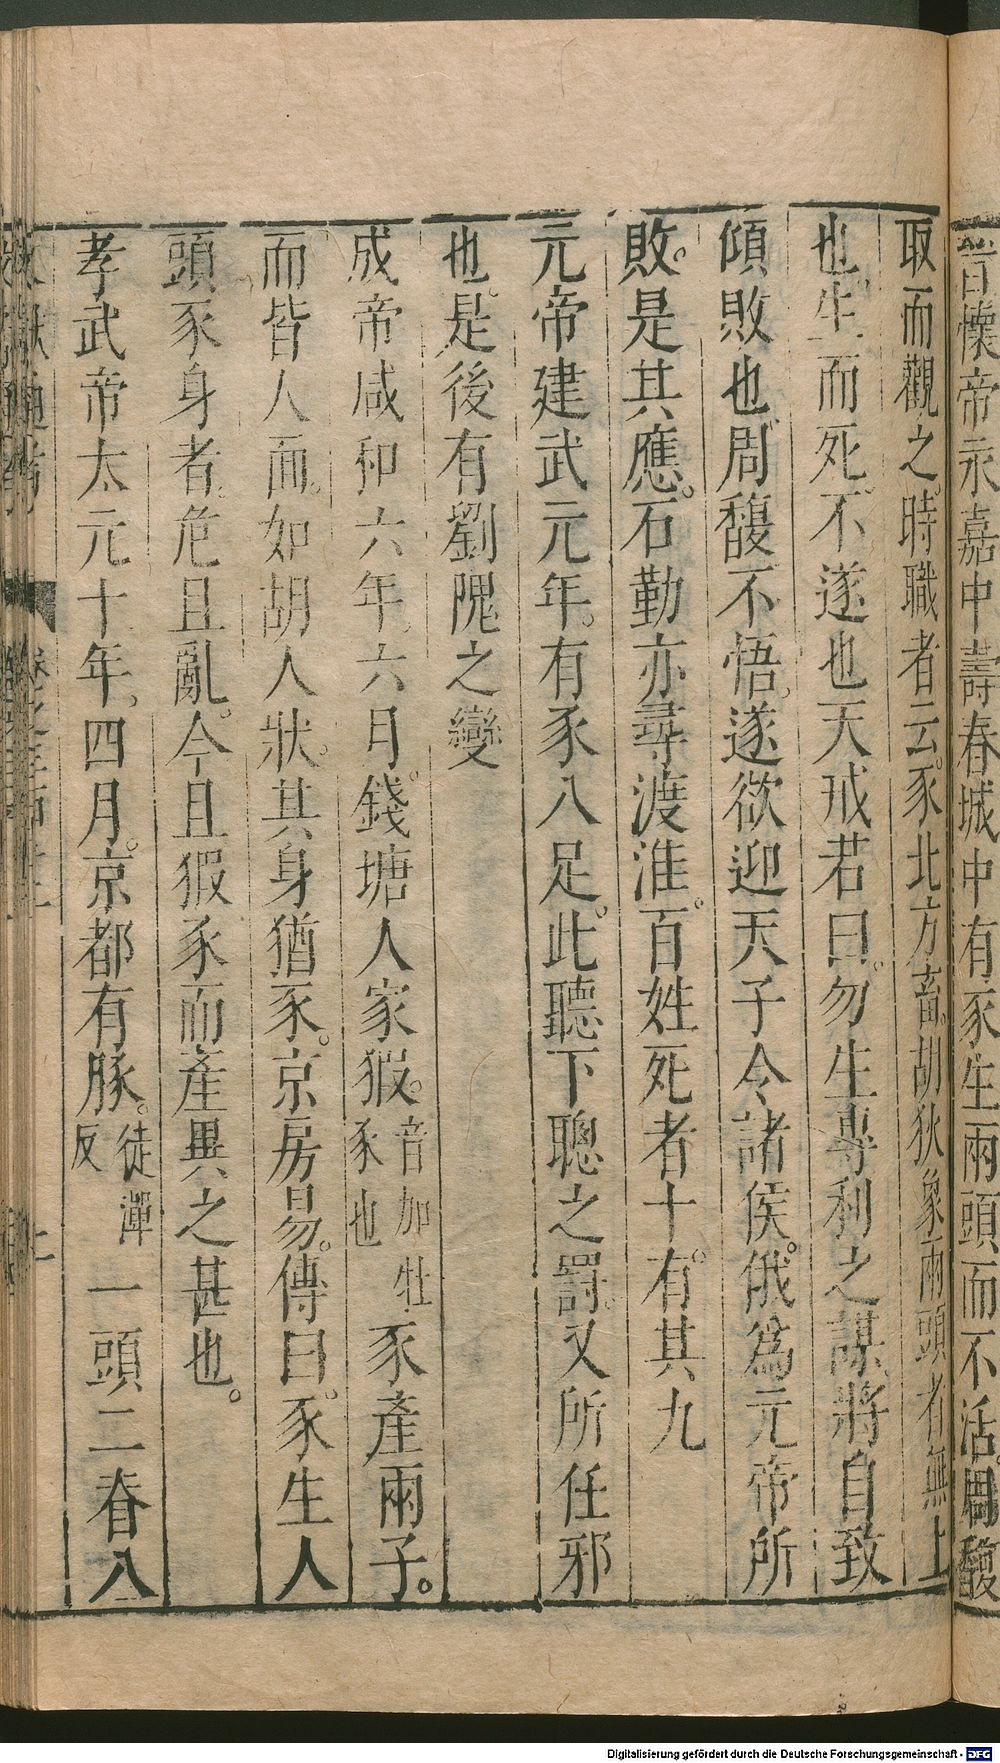 昔懷帝永嘉中壽春城中有豕生兩頭而不活周馥
取而觀之時職者云豕北方畜胡狄象兩頭者無上
也生而死不遂也天戒若曰勿生專利之謀將自致
傾敗也周馥不悟遂欲迎天子令諸侯俄爲元帝所
敗是其應石勒亦尋渡淮百姓死者十有其九
元帝建武元年有豕八足此聽不聰之罰又所任邪
也是後有劉隗之變
成帝咸和六年六月錢塘人家豭音加牡豕也豕產兩子
而皆人面如胡人狀其身猶豕京房易傳曰豕生人
頭豕身者危且亂今且豭豕而產異之甚也
孝武帝太元十年四月京都有豚徒渾反一頭二脊八
Digitalisierung gefördert durch die Deutsche Forschungsgemeinschaft - DFG